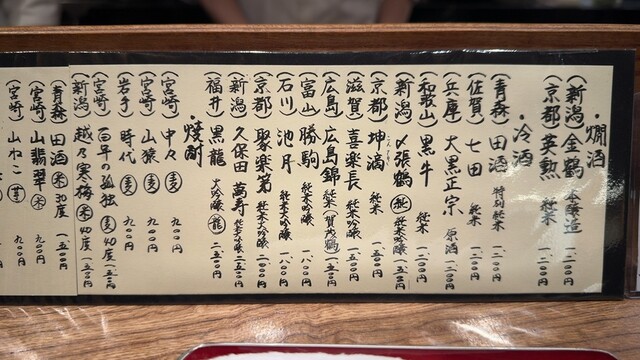 ・燗酒
(新潟)金鶴 本醸造 一、二〇〇円
(京都)英勲 純米 一、二〇〇円
・冷酒
(青森)田酒 特別純米 一、二〇〇円
(佐賀)七田 純米 一、二〇〇円
(兵庫)大黒正宗 原酒 一、二〇〇円
(和歌山)黒牛 純米 一、二〇〇円
(新潟)〆張鶴 純 純米吟醸 一、五〇〇円
(京都)坤滴 純米 一、五〇〇円
(滋賀)喜楽長 純米吟醸 一、五〇〇円
(広島)広島錦 純米 賀茂鶴 一、五〇〇円
(富山)勝駒 純米吟醸 一、八〇〇円
(石川)池月 純米大吟醸 一、八〇〇円
(京都)聚楽第 純米大吟醸 二、四〇〇円
(新潟)久保田萬寿 純米大吟醸 二、五〇〇円
(福井)黒龍 大吟醸 龍 二、五〇〇円
・焼酎
(宮崎)中々 麦 九〇〇円
(宮崎)山猿 麦 九〇〇円
(岩手)時代 麦 九〇〇円
(宮崎)百年の孤独 麦 40度 一、五〇〇円
(新潟)越乃寒梅 米 40度 一、五〇〇円
(青森)田酒 米 30度 一、五〇〇円
(宮崎)山翡翠 米 九〇〇円
(宮崎)山ねこ 芋 九〇〇円